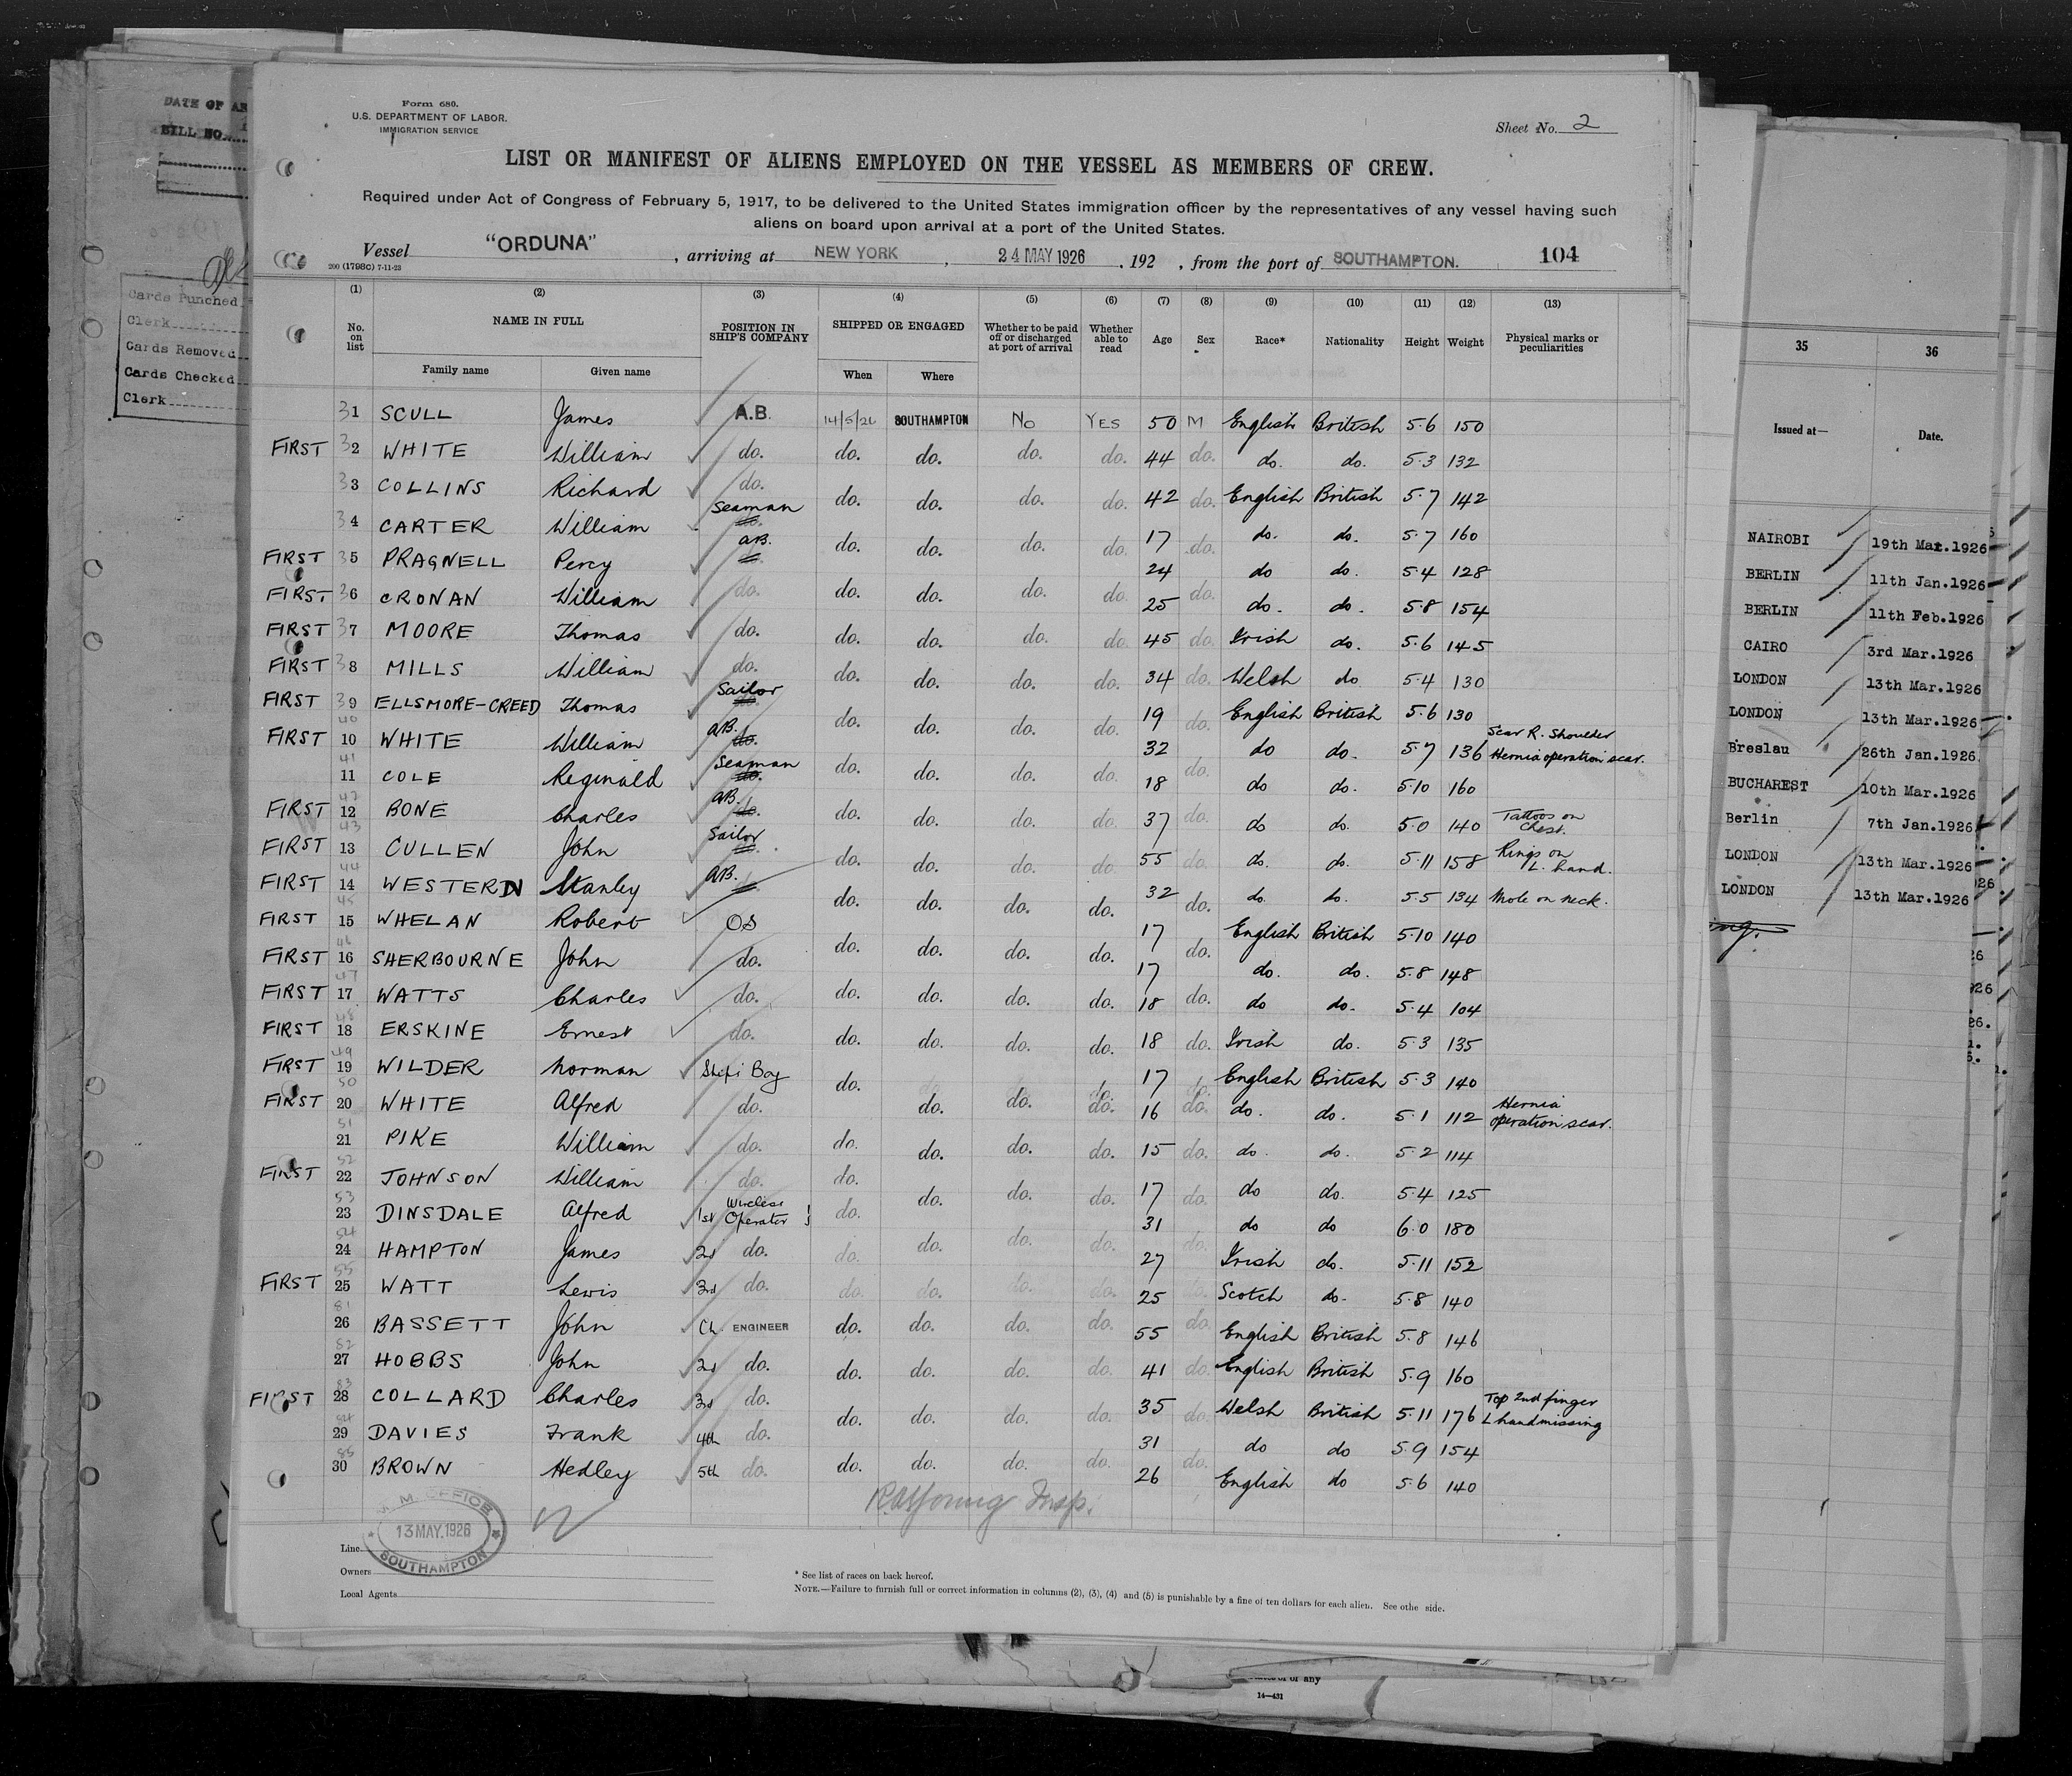 Form 680.
U.S. DEPARTMENT OF LABOR.
IMMIGRATION SERVICE
Sheet No. 2
LIST OR MANIFEST OF ALIENS EMPLOYED ON THE VESSEL AS MEMBERS OF CREW.
Required under Act of Congress of February 5, 1917, to be delivered to the United States immigration officer by the representatives of any vessel having such
aliens on board upon arrival at a port of the United States.
Vessel "ORDUNA", arriving at NEW YORK, 24 MAY 1926, 192 , from the port of SOUTHAMPTON. 104
200 (1798C) 7-11-23
(1) (2) (3) (4) (5) (6) (7) (8) (9) (10) (11) (12) (13)
No. on list NAME IN FULL POSITION IN SHIP'S COMPANY SHIPPED OR ENGAGED Whether to be paid off or discharged at port of arrival Whether able to read Age Sex Race* Nationality Height Weight Physical marks or peculiarities
Family name Given name When Where
31 SCULL James A.B. 14/5/26 SOUTHAMPTON No YES 50 M English British 5.6 150
FIRST 32 WHITE William do. do. do. do. do. 44 do. do. do. 5.3 132
33 COLLINS Richard do. do. do. do. do. 42 do. English British 5.7 142
34 CARTER William Seaman do. do. do. do. do. 17 do. do. do. 5.7 160
FIRST 35 PRAGNELL Percy A.B. do. do. do. do. 24 do. do do. 5.4 128
FIRST 36 CRONAN William do. do. do. do. do. 25 do. do. do. 5.8 154
FIRST 37 MOORE Thomas do. do. do. do. do. 45 do. Irish do. 5.6 145
FIRST 38 MILLS William do. do. do. do. do. 34 do. Welsh do 5.4 130
FIRST 39 ELLSMORE-CREED Thomas Sailor do. do. do. do. do. 19 do. English British 5.6 130
FIRST 40 10 WHITE William A.B. do. do. do. do. do. 32 do. do do. 5.7 136 Scar R. Shoulder Hernia operation scar.
41 11 COLE Reginald Seaman do. do. do. do. do. 18 do do. 5.10 160
FIRST 42 12 BONE Charles A.B. do. do. do. do. do. 37 do. do do. 5.0 140 Tattoos on Chest.
FIRST 43 13 CULLEN John Sailor do. do. do. do. 55 do. do. do. 5.11 158 Rings on L. hand.
FIRST 44 14 WESTERN Stanley A.B. do. do. do. do. 32 do. do. do. 5.5 134 Mole on neck.
FIRST 45 15 WHELAN Robert OS do. do. do. do. 17 do. English British 5.10 140
FIRST 46 16 SHERBOURNE John do. do. do. do. do. 17 do. do. do. 5.8 148
FIRST 47 17 WATTS Charles do. do. do. do. do. 18 do. do do. 5.4 104
FIRST 48 18 ERSKINE Ernest do. do. do. do. do. 18 do. Irish do. 5.3 135
FIRST 49 19 WILDER Norman Ship's Boy do. do. 17 English British 5.3 140
FIRST 50 20 WHITE Alfred do. do. do. do. 16 do. do. do. 5.1 112 Hernia operation scar.
51 21 PIKE William do. do. do. do. do. 15 do. do. do. 5.2 114
FIRST 52 22 JOHNSON William do. do. do. do. do. 17 do. do do. 5.4 125
53 23 DINSDALE Alfred 1st Wireless Operator do. 31 do do 6.0 180
54 24 HAMPTON James 2nd do. do. do. do. do. 27 do. Irish do. 5.11 152
FIRST 55 25 WATT Lewis 3rd do. do. do. do. do. 25 Scotch do. 5.8 140
81 26 BASSETT John Ch. ENGINEER do. do. do. do. 55 do. English British 5.8 146
82 27 HOBBS John 2nd do. do. do. do. do. 41 do. English British 5.9 160
FIRST 83 28 COLLARD Charles 3rd do. do. do. do. do. 35 do. Welsh British 5.11 176 Top 2nd finger L hand missing
84 29 DAVIES Frank 4th do. 31 do do 5.9 154
85 30 BROWN Hedley 5th do. do. do. do. do. 26 do. English do 5.6 140
M.M. OFFICE
13 MAY.1926
SOUTHAMPTON
Line
Owners
Local Agents
* See list of races on back hereof.
NOTE.—Failure to furnish full or correct information in columns (2), (3), (4) and (5) is punishable by a fine of ten dollars for each alien. See othe side.
DATE OF AR
BILL NO.
Cards Punched
Clerk
Cards Removed
Cards Checked
Clerk
35 36
Issued at— Date.
NAIROBI 19th Mar.1926
BERLIN 11th Jan.1926
BERLIN 11th Feb.1926
CAIRO 3rd Mar.1926
LONDON 13th Mar.1926
LONDON 13th Mar.1926
Breslau 26th Jan.1926
BUCHAREST 10th Mar.1926
Berlin 7th Jan.1926
LONDON 13th Mar.1926
LONDON 13th Mar.1926
of any
14—431